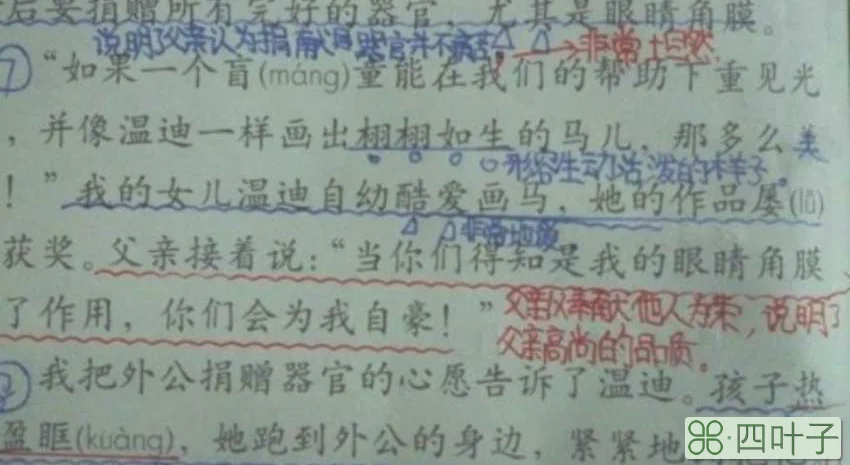 后要捐赠所有完好的器官，尤其是眼睛角膜。
说明父亲认为捐献 器官并不痛苦 非常坦然
⑦“如果一个盲(máng)童能在我们的帮助下重见光
，并像温迪一样画出栩栩如生的马儿，那多么美
形容生动活泼的样子。
！”我的女儿温迪自幼酷爱画马，她的作品屡(lǚ)
非常地爱
获奖。父亲接着说：“当你们得知是我的眼睛角膜
了作用，你们会为我自豪！”
父亲以奉献他人为荣，说明了
父亲高尚的品质。
我把外公捐赠器官的心愿告诉了温迪。孩子热
盈眶(kuàng)，她跑到外公的身边，紧紧地
四叶子